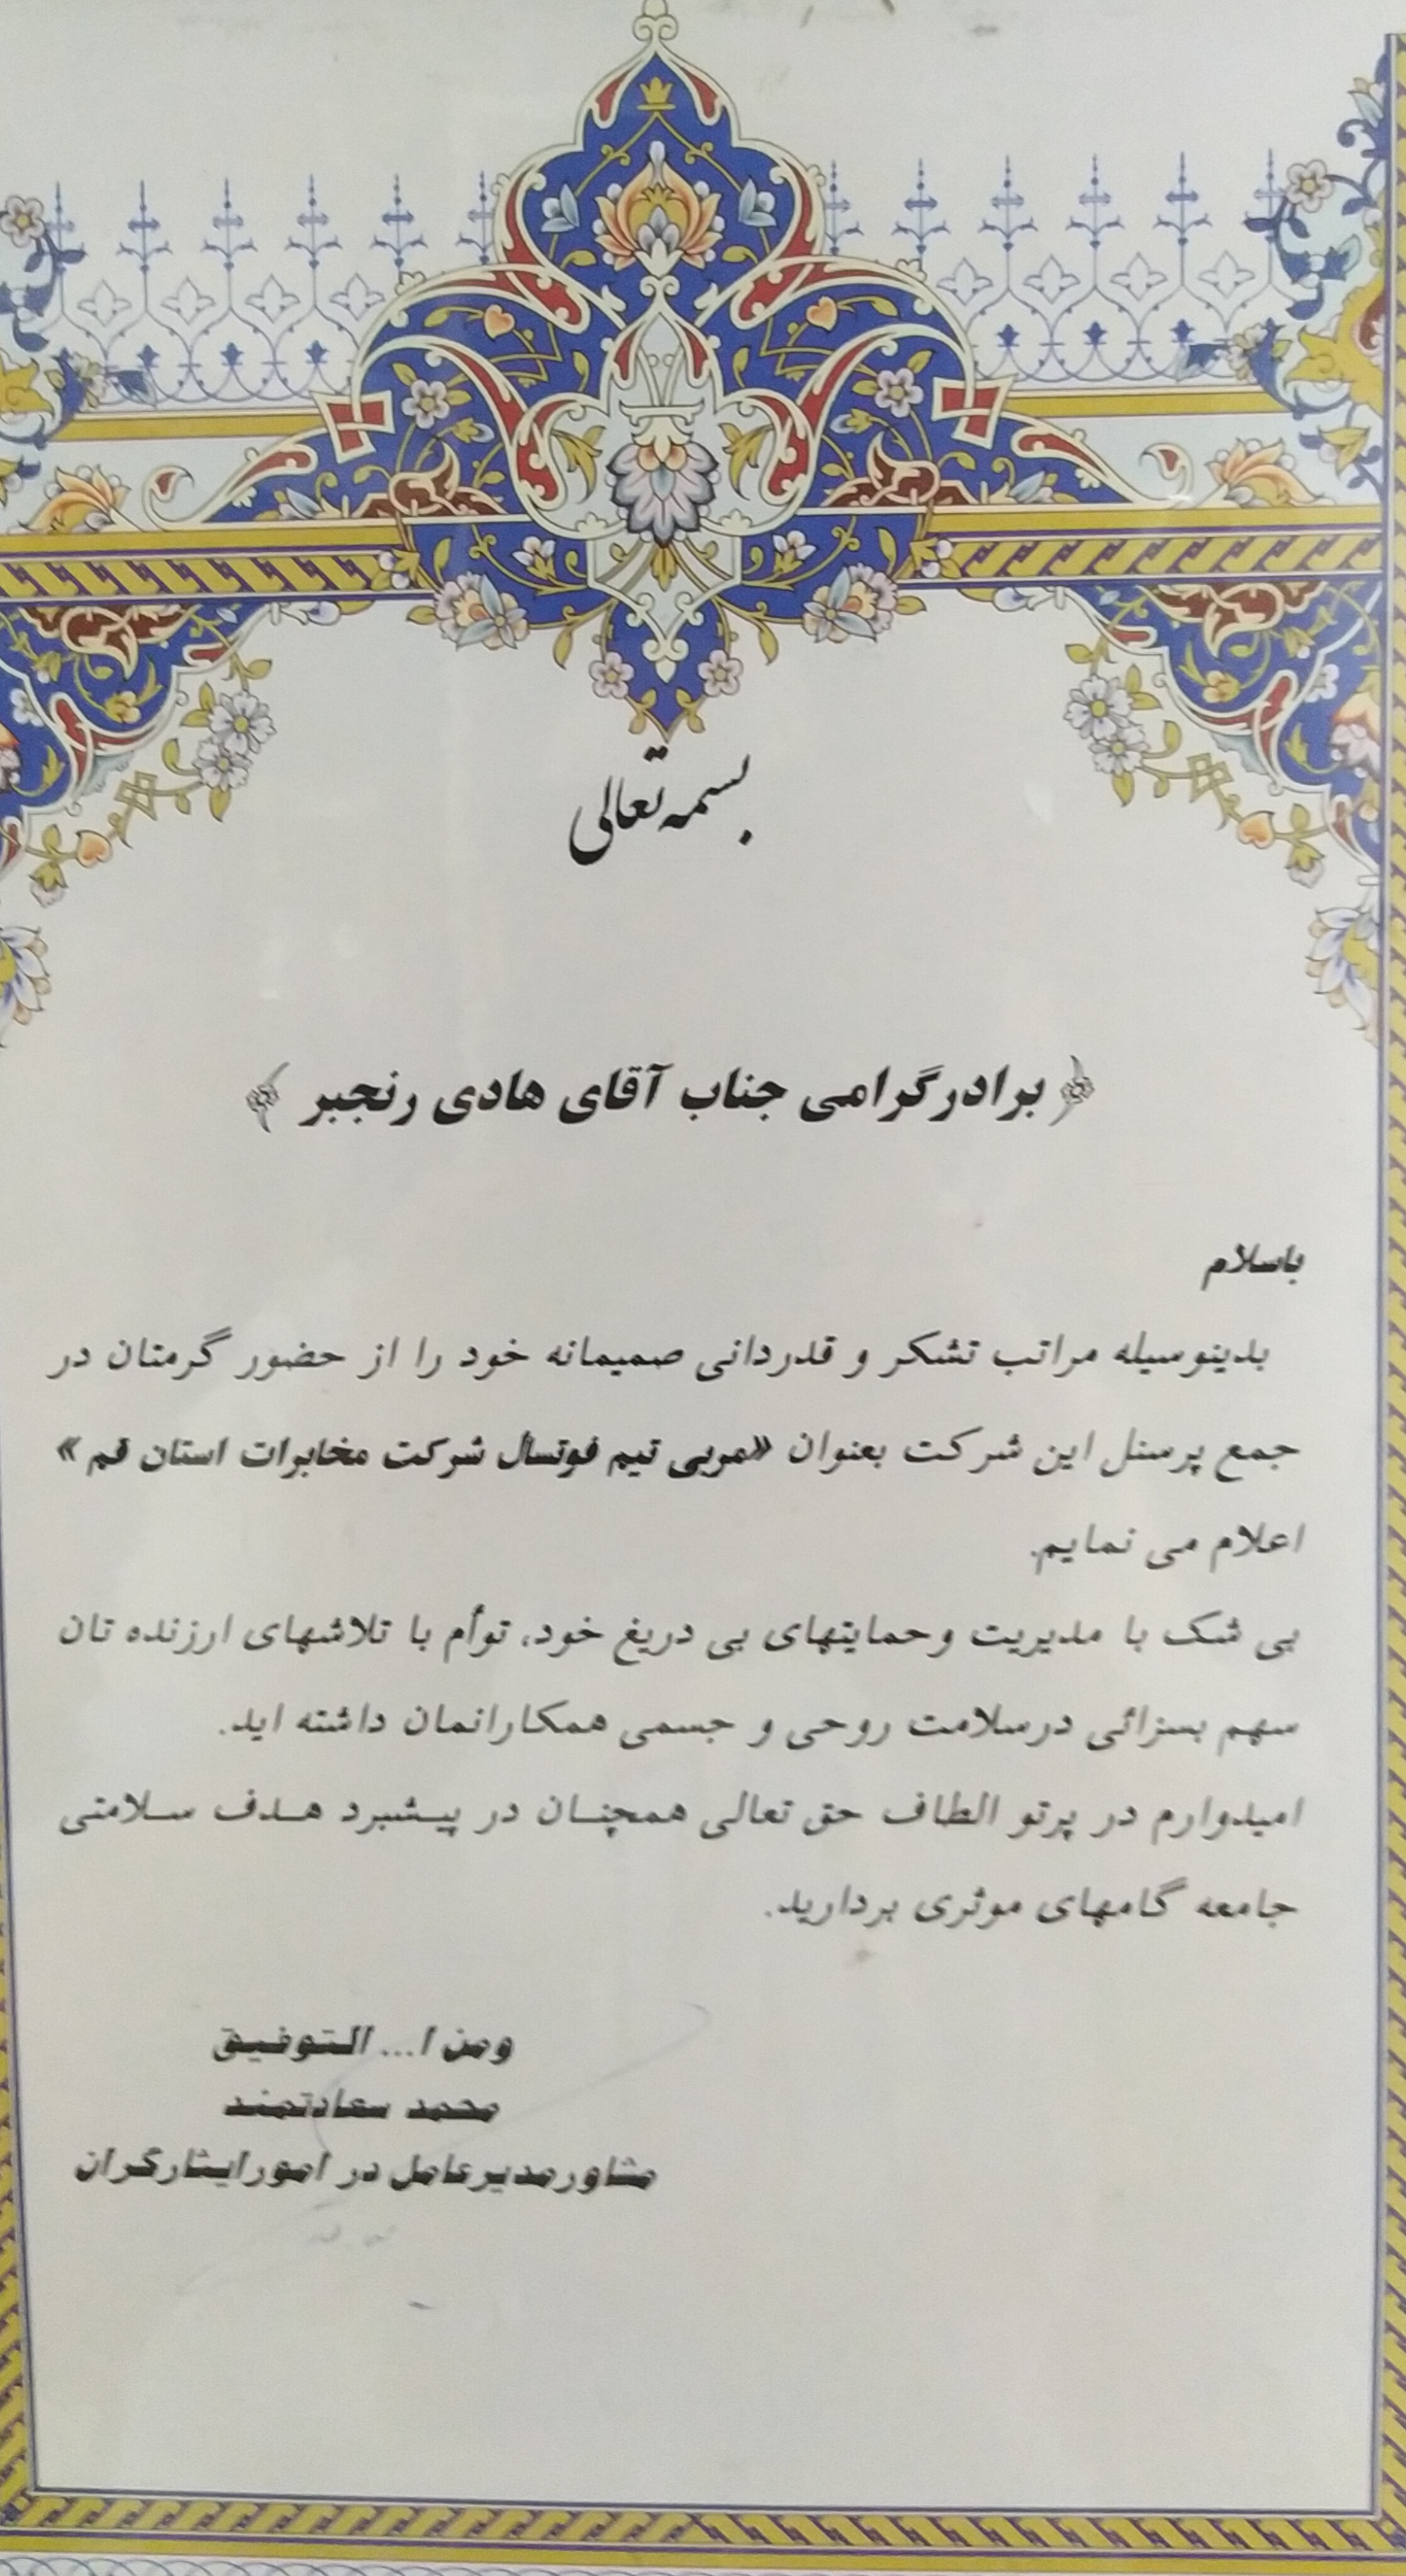 بسمه تعالی
برادر گرامی جناب آقای هادی رنجبر
باسلام
بدینوسیله مراتب تشکر و قدردانی صمیمانه خود را از حضور گرمتان در
جمع پرسنل این شرکت بعنوان «مربی تیم فوتسال شرکت مخابرات استان قم»
اعلام می نمایم.
بی شک با مدیریت وحمایتهای بی دریغ خود، توأم با تلاشهای ارزنده تان
سهم بسزائی درسلامت روحی و جسمی همکارانمان داشته اید.
امیدوارم در پرتو الطاف حق تعالی همچنـان در پیـشبرد هـدف سـلامتی
جامعه گامهای موثری بردارید.
ومن ا... التوفیق
محمد سعادتمند
مشاورمدیرعامل در امورایثارگران